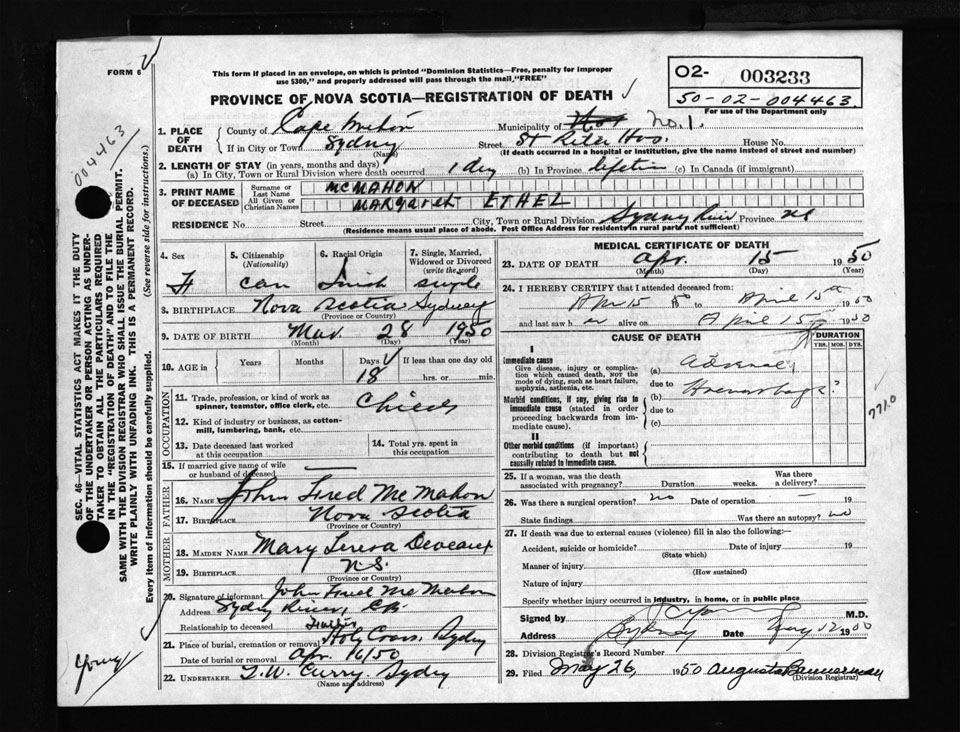 FORM 6
This form if placed in an envelope, on which is printed "Dominion Statistics—Free, penalty for improper
use $300," and properly addressed will pass through the mail, "FREE"
O2- 003233
50-02-004463.
For use of the Department only
PROVINCE OF NOVA SCOTIA—REGISTRATION OF DEATH
004463
1. PLACE OF DEATH
County of Cape Breton Municipality of No. 1.
If in City or Town Sydney Street St Rita Hos. House No.
(Name) (If death occurred in a hospital or institution, give the name instead of street and number)
2. LENGTH OF STAY (in years, months and days)
(a) In City, Town or Rural Division where death occurred 1 day (b) In Province lifetime (c) In Canada (if immigrant)
3. PRINT NAME OF DECEASED
Surname or Last Name McMAHON
All Given or Christian Names MARGARET ETHEL
RESIDENCE No. Street City, Town or Rural Division Sydney River Province NS
(Residence means usual place of abode. Post Office Address for residents in rural parts not sufficient)
4. Sex F
5. Citizenship (Nationality) Can
6. Racial Origin Irish
7. Single, Married, Widowed or Divorced (write the word) single
8. BIRTHPLACE Nova Scotia Sydney
(Province or Country)
9. DATE OF BIRTH Mar. 28 1950
(Month) (Day) (Year)
10. AGE in Years Months Days 18 If less than one day old hrs. or min.
OCCUPATION
11. Trade, profession, or kind of work as spinner, teamster, office clerk, etc. Child
12. Kind of industry or business, as cotton-mill, lumbering, bank, etc.
13. Date deceased last worked at this occupation
14. Total yrs. spent in this occupation
15. If married give name of wife or husband of deceased
FATHER
16. NAME John Fred McMahon
17. BIRTHPLACE Nova Scotia
(Province or Country)
MOTHER
18. MAIDEN NAME Mary Teresa Deveaux
19. BIRTHPLACE N.S.
(Province or Country)
20. Signature of informant John Fred McMahon
Address Sydney River, CB
Relationship to deceased Father
21. Place of burial, cremation or removal Holy Cross, Sydney
Date of burial or removal Apr. 16/50
22. UNDERTAKER T.W. Curry. Sydney
(Name and address)
MEDICAL CERTIFICATE OF DEATH
23. DATE OF DEATH Apr. 15 1950
(Month) (Day) (Year)
24. I HEREBY CERTIFY that I attended deceased from:
Apr 15 50 to April 15th 1950
and last saw her alive on April 15th 1950
CAUSE OF DEATH
DURATION
YRS. MOS. DYS.
I
Immediate cause
Give disease, injury or complication which caused death, NOT the mode of dying, such as heart failure, asphyxia, asthenia, etc.
(a) Adrenal
due to
(b) Hemorrhage?
Morbid conditions, if any, giving rise to immediate cause (stated in order proceeding backwards from immediate cause).
due to
(c)
II
Other morbid conditions (if important) contributing to death but not causally related to immediate cause.
7710
25. If a woman, was the death associated with pregnancy? Duration weeks. Was there a delivery?
26. Was there a surgical operation? no Date of operation 19
State findings Was there an autopsy? no
27. If death was due to external causes (violence) fill in also the following:
Accident, suicide or homicide? Date of injury 19
(State which)
Manner of injury
(How sustained)
Nature of injury
Specify whether injury occurred in industry, in home, or in public place
Signed by M.D.
Address Sydney Date May 12 1950
28. Division Registrar's Record Number
29. Filed May 26, 1950 Augusta Bannerman
(Division Registrar)
SEC. 46—VITAL STATISTICS ACT MAKES IT THE DUTY
OF THE UNDERTAKER OR PERSON ACTING AS UNDER-
TAKER TO OBTAIN ALL THE PARTICULARS REQUIRED
IN THE "REGISTRATION OF DEATH" AND TO FILE THE
SAME WITH THE DIVISION REGISTRAR WHO SHALL ISSUE THE BURIAL PERMIT.
WRITE PLAINLY WITH UNFADING INK. THIS IS A PERMANENT RECORD.
Every item of information should be carefully supplied. (See reverse side for instructions.)